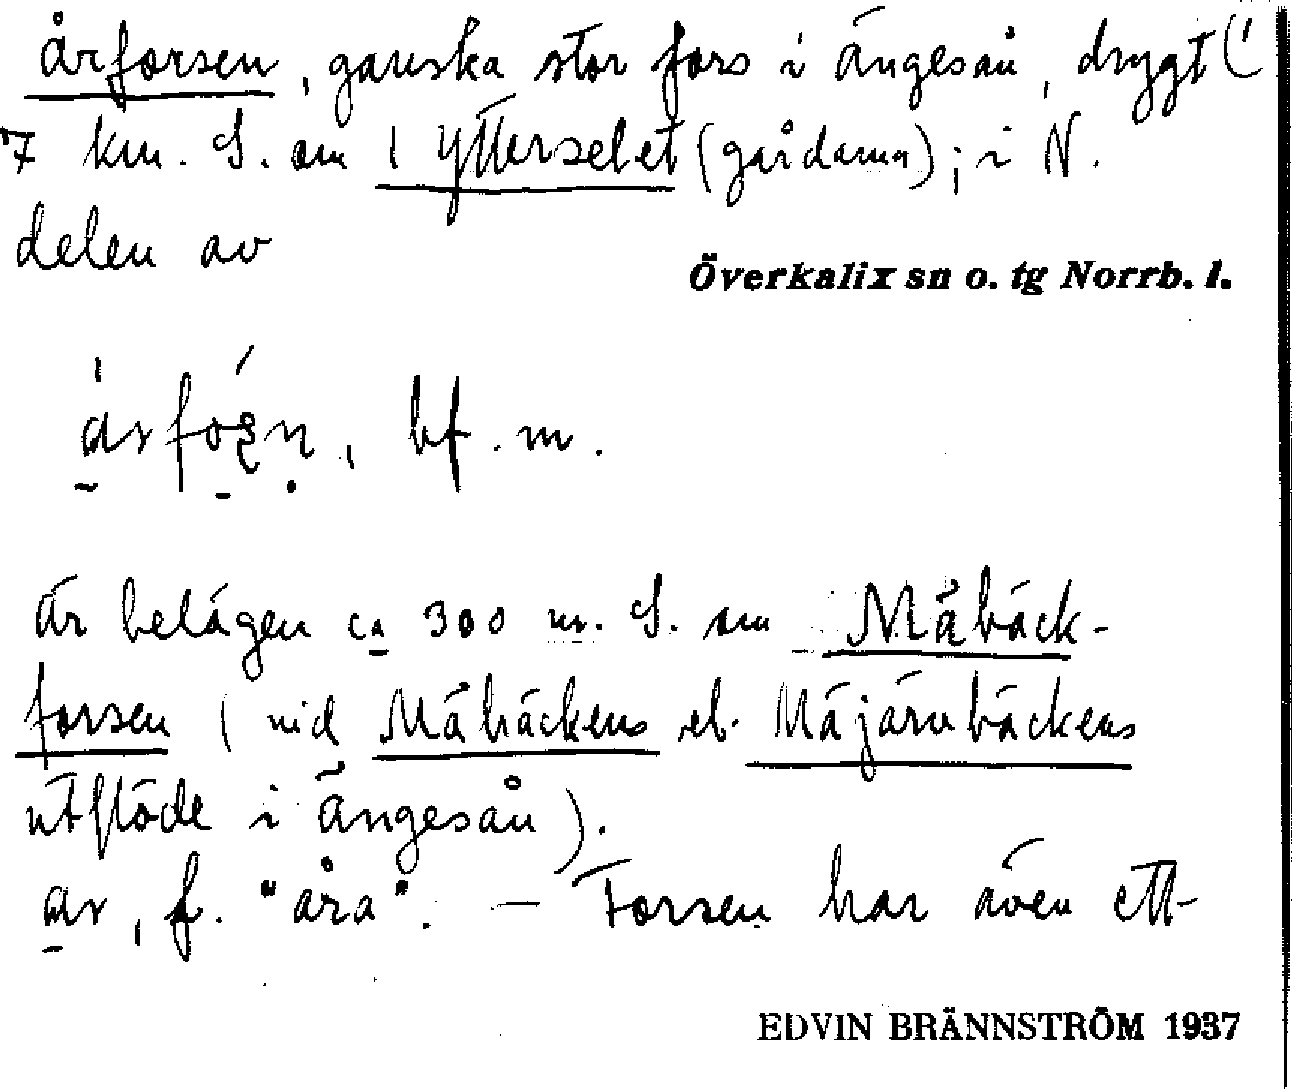 årforsen, ganska stor fors i Ängesån, drygt (
7 km. S. om Ytterselet (gårdarna); i N.
delen av
Överkalix sn o. tg Norrb. l.
bf. m.
är belägen ca 300 m. S. om Måbäck-
forsen (vid Måbäckens el. Måjärvbäckens
utflöde i Ängesån).
ar, f. "åra". — Forsen har även ett
EDVIN BRÄNNSTRÖM 1937